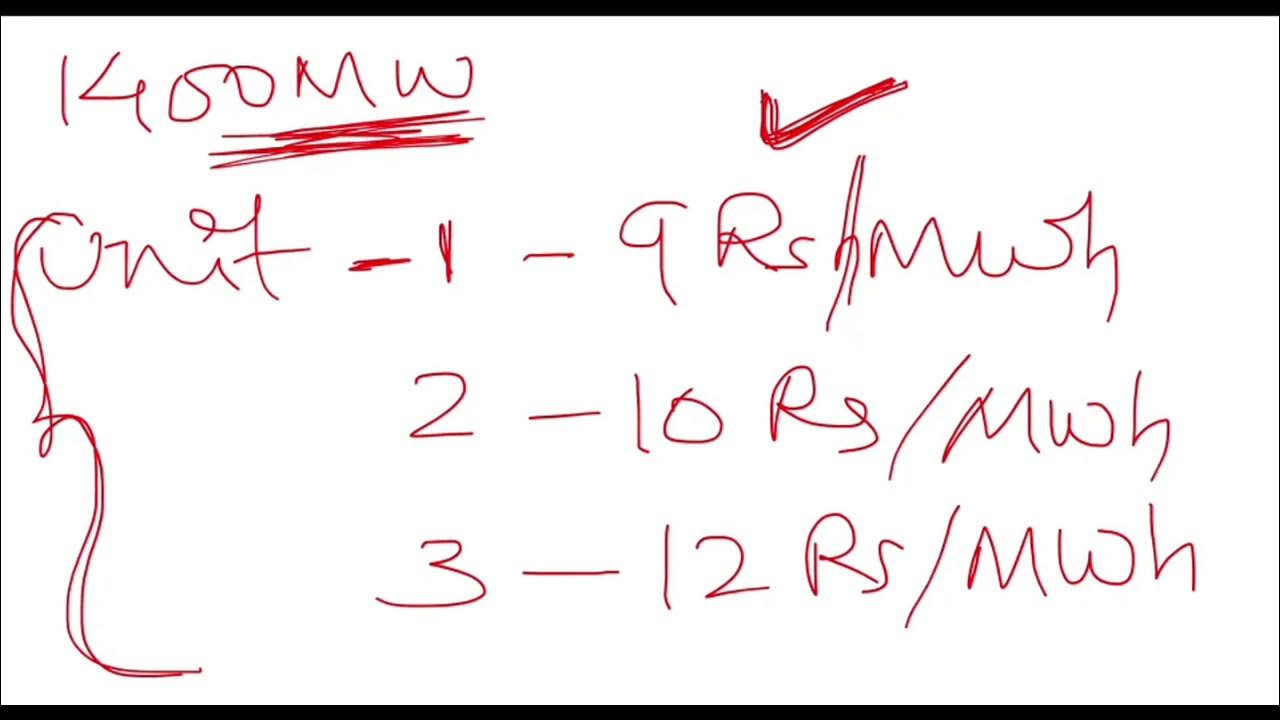 1400MW
Unit - 1 - 9 Rs/MWh
2 - 10 Rs/MWh
3 - 12 Rs/MWh